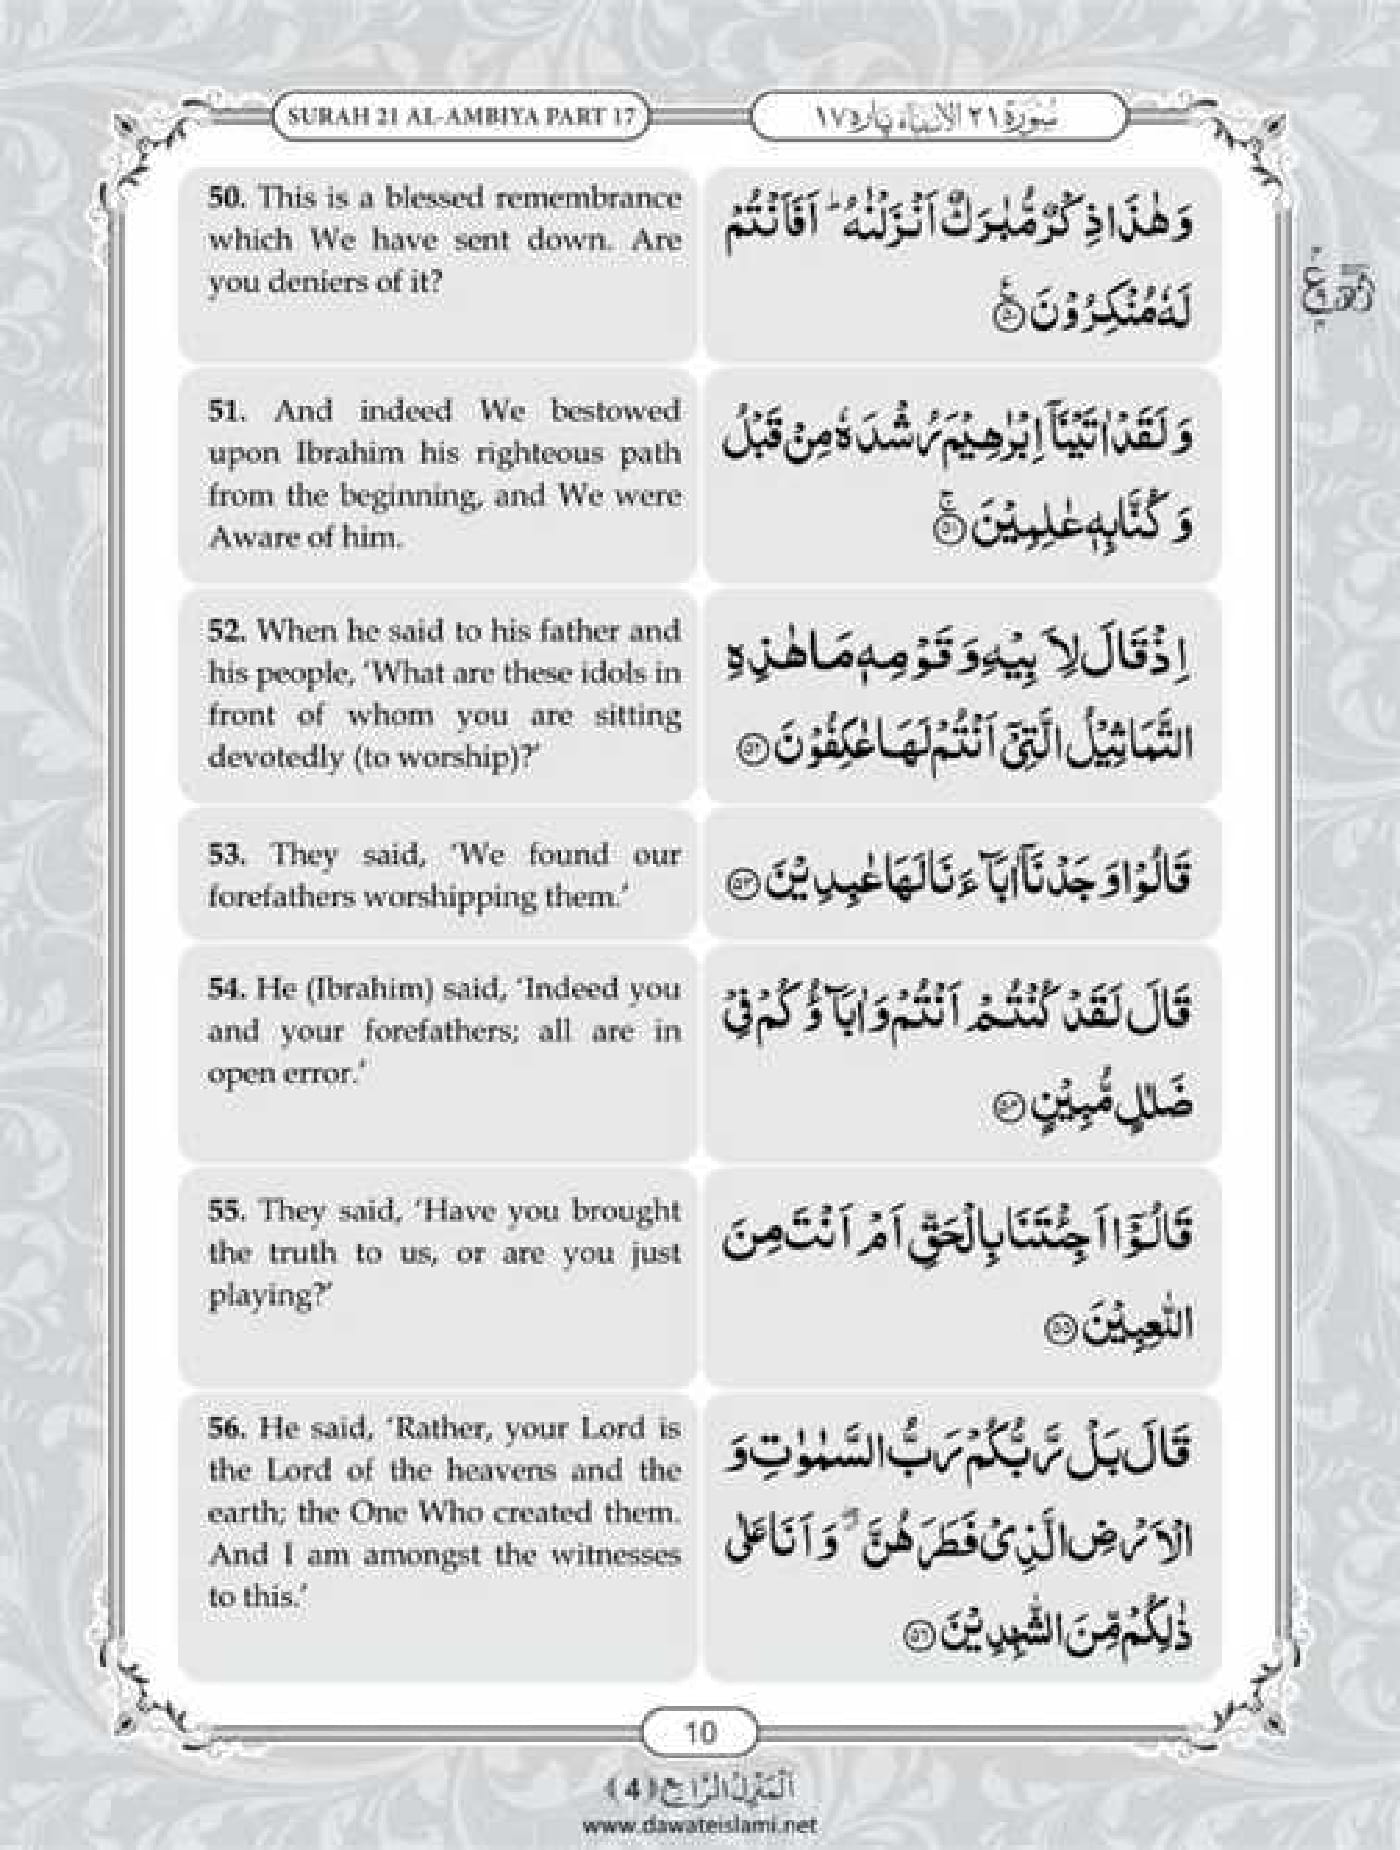 SURAH 21 AL-AMBIYA PART 17
سُوْرَة ٢١ الاَنْبِيَاء پاره ١٧
50. This is a blessed remembrance
which We have sent down. Are
you deniers of it?
وَ هٰذَا ذِكْرٌ مُّبٰرَكٌ اَنْزَلْنٰهُ ؕ اَفَاَنْتُمْ
لَهٗ مُنْكِرُوْنَ ۠﴿۵۰﴾
51. And indeed We bestowed
upon Ibrahim his righteous path
from the beginning, and We were
Aware of him.
وَ لَقَدْ اٰتَیْنَاۤ اِبْرٰهِیْمَ رُشْدَهٗ مِنْ قَبْلُ
وَ كُنَّا بِهٖ عٰلِمِیْنَ ۚ﴿۵۱﴾
52. When he said to his father and
his people, ‘What are these idols in
front of whom you are sitting
devotedly (to worship)?’
اِذْ قَالَ لِاَبِیْهِ وَ قَوْمِهٖ مَا هٰذِهِ
التَّمَاثِیْلُ الَّتِیْۤ اَنْتُمْ لَهَا عٰكِفُوْنَ ﴿۵۲﴾
53. They said, ‘We found our
forefathers worshipping them.’
قَالُوْا وَجَدْنَاۤ اٰبَآءَنَا لَهَا عٰبِدِیْنَ ﴿۵۳﴾
54. He (Ibrahim) said, ‘Indeed you
and your forefathers; all are in
open error.’
قَالَ لَقَدْ كُنْتُمْ اَنْتُمْ وَ اٰبَآؤُكُمْ فِیْ
ضَلٰلٍ مُّبِیْنٍ ﴿۵۴﴾
55. They said, ‘Have you brought
the truth to us, or are you just
playing?’
قَالُوْۤا اَجِئْتَنَا بِالْحَقِّ اَمْ اَنْتَ مِنَ
اللّٰعِبِیْنَ ﴿۵۵﴾
56. He said, ‘Rather, your Lord is
the Lord of the heavens and the
earth; the One Who created them.
And I am amongst the witnesses
to this.’
قَالَ بَلْ رَّبُّكُمْ رَبُّ السَّمٰوٰتِ وَ
الْاَرْضِ الَّذِیْ فَطَرَهُنَّ ۖ٘ وَ اَنَا عَلٰی
ذٰلِكُمْ مِّنَ الشّٰهِدِیْنَ ﴿۵۶﴾
10
اَلْمَنْزِلُ الرَّابِع (4)
www.dawateislami.net